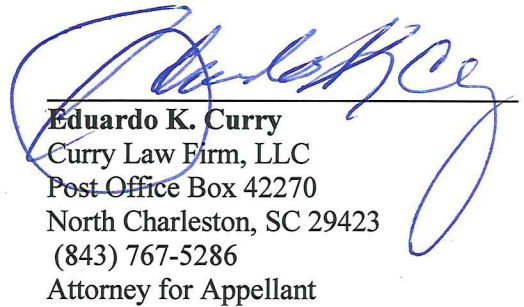 Eduardo K. Curry
Curry Law Firm, LLC
Post Office Box 42270
North Charleston, SC 29423
(843) 767-5286
Attorney for Appellant